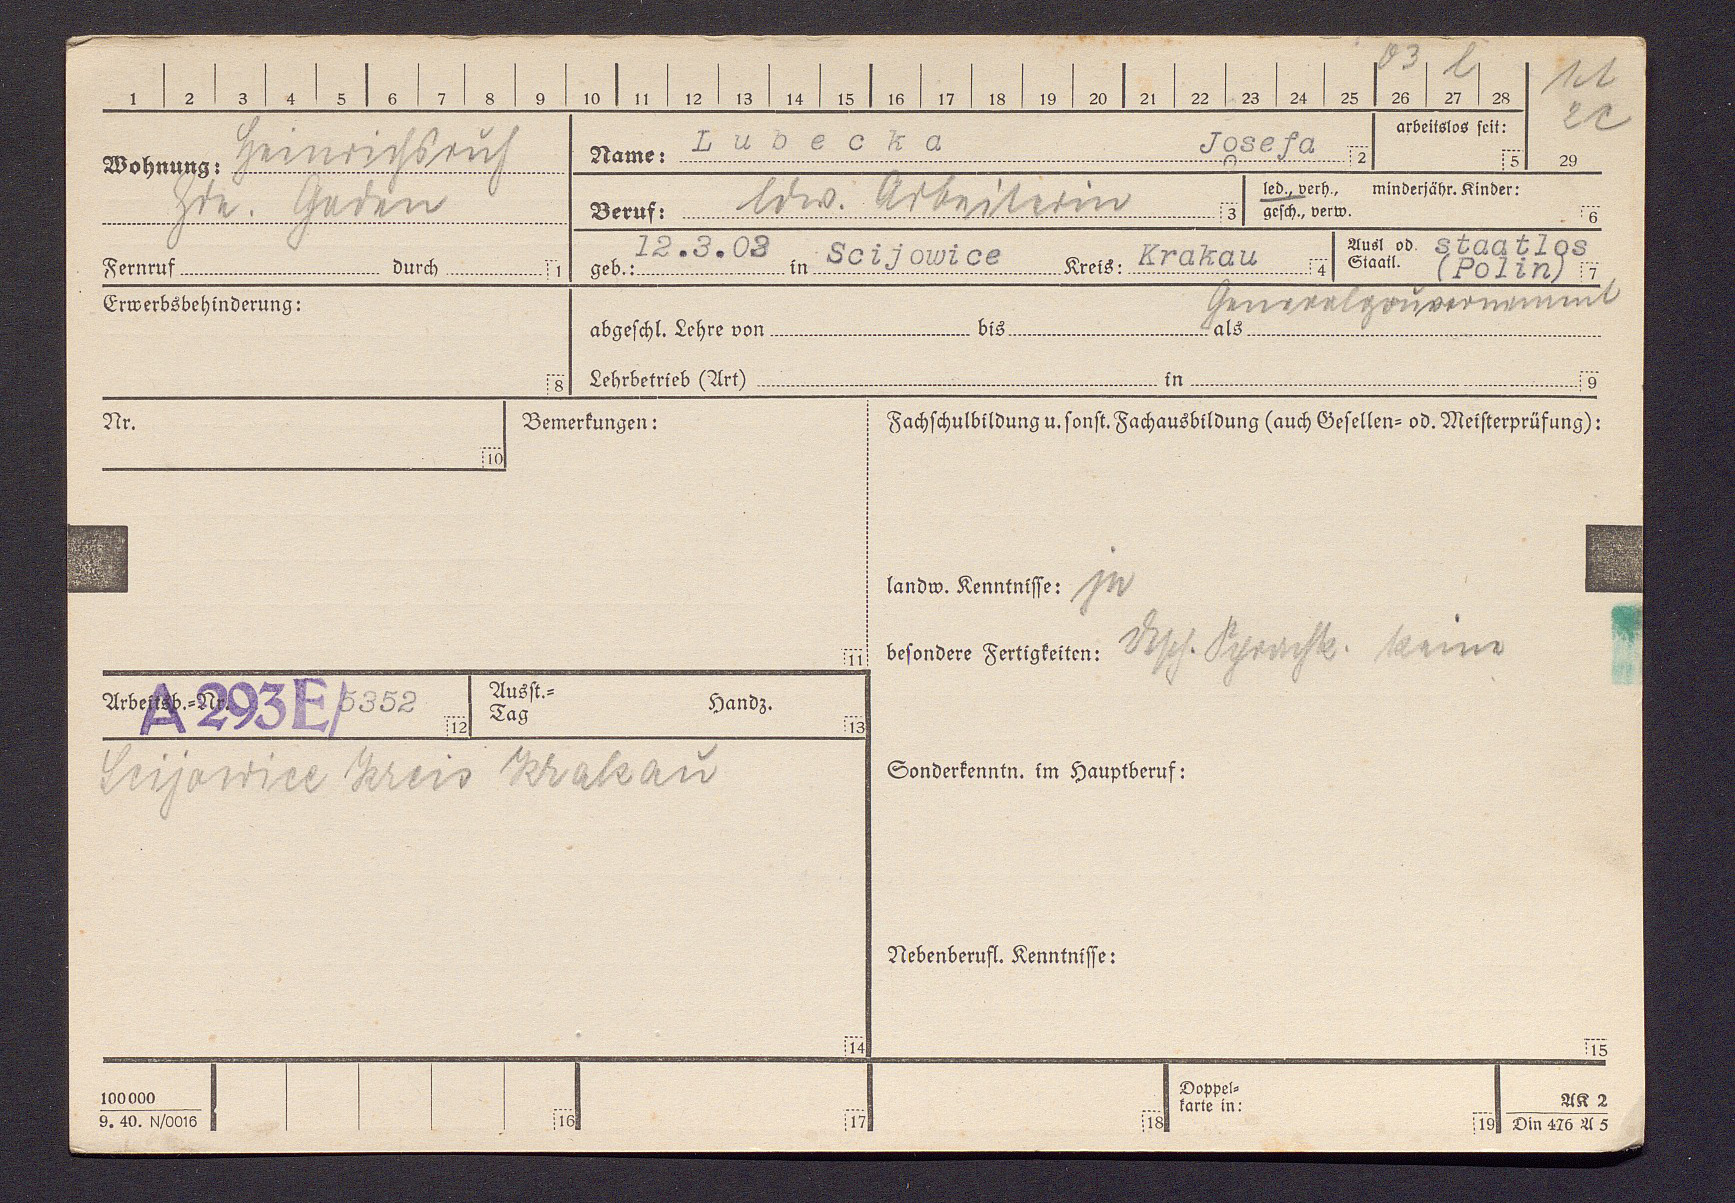 03 l
1 2 3 4 5 6 7 8 9 10 11 12 13 14 15 16 17 18 19 20 21 22 23 24 25 26 27 28
29
arbeitslos seit: 5
Wohnung: Heinrichsruh
Name: Lubecka Josefa 2
Beruf: ldw. Arbeiterin 3
led., verh., minderjähr. Kinder:
gesch., verw. 6
Fernruf durch 1
geb.: 12.3.03 in Scijowice Kreis: Krakau 4
Ausl od. staatlos
Staatl. (Polin) 7
Generalgouvernement
Erwerbsbehinderung: 8
abgeschl. Lehre von bis als
Lehrbetrieb (Art) in 9
Nr. 10
Bemerkungen: 11
Fachschulbildung u. sonst. Fachausbildung (auch Gesellen- od. Meisterprüfung):
landw. Kenntnisse: ja
besondere Fertigkeiten: dtsch. Sprachk. keine
Arbeitsb.-Nr. A 293E/5352 12
Ausst.- Handz.
Tag 13
Scijowice Kreis Krakau
Sonderkenntn. im Hauptberuf:
Nebenberufl. Kenntnisse:
14
15
100000
9. 40. N/0016
16
17
18
Doppel-
karte in:
19
AK 2
Din 476 A 5